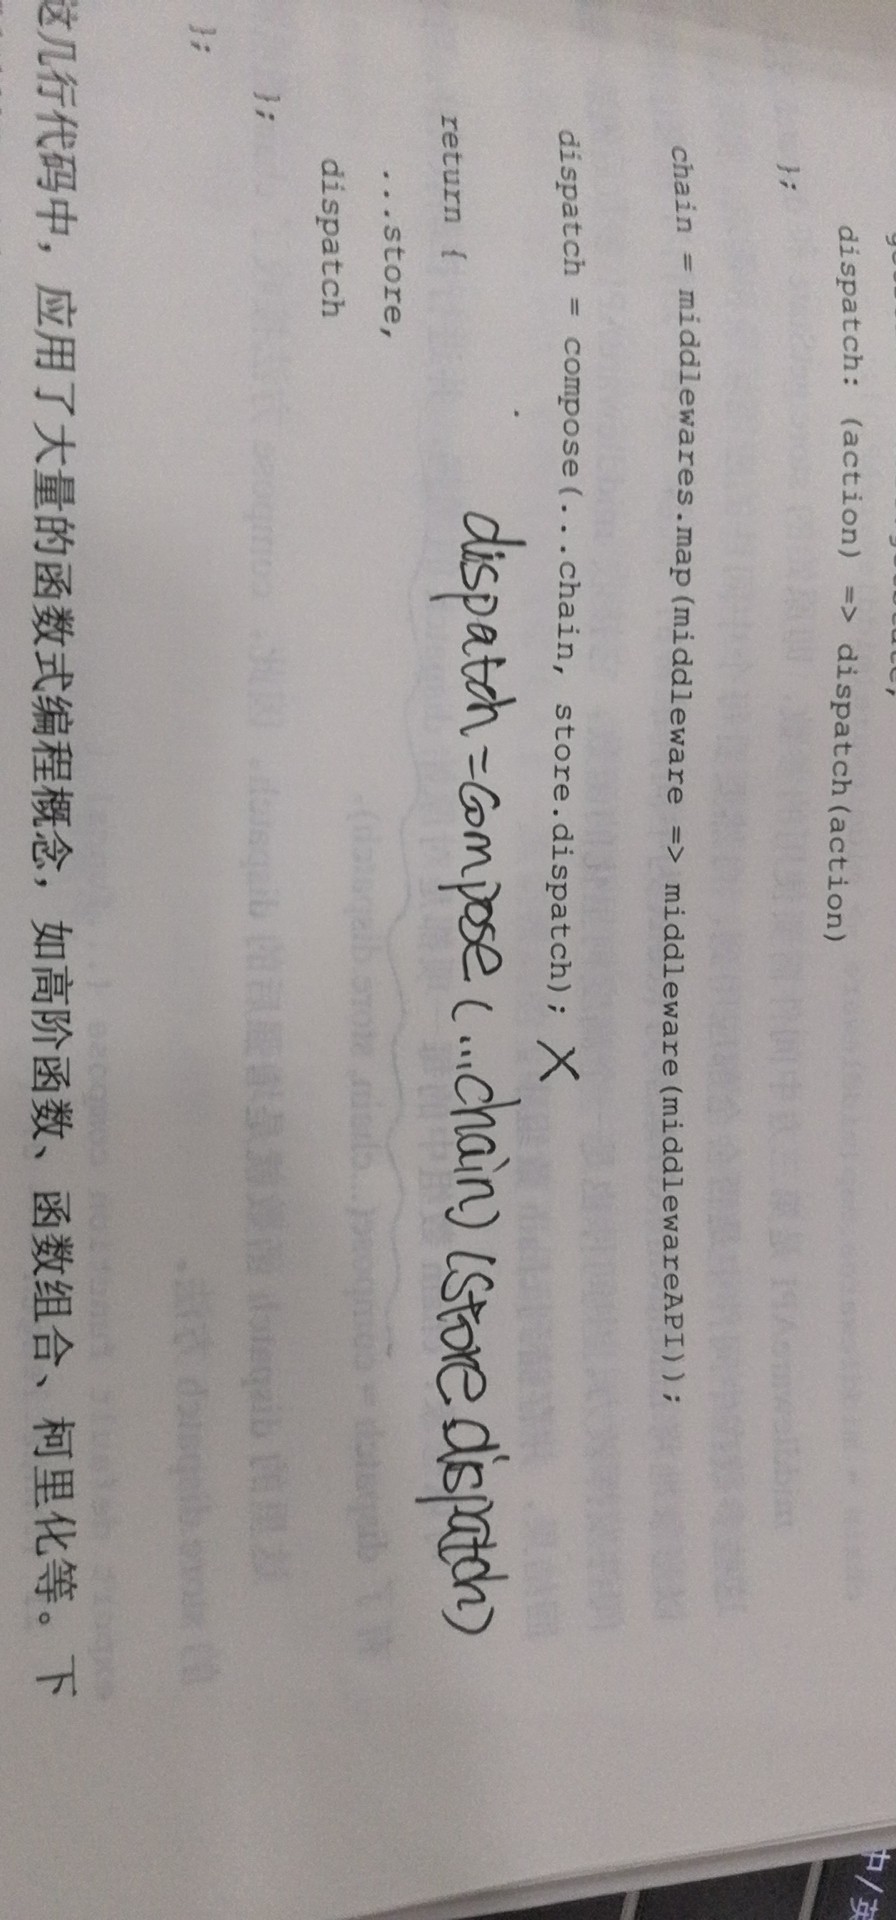 dispatch: (action) => dispatch(action)
};
chain = middlewares.map(middleware => middleware(middlewareAPI));
dispatch = compose(...chain, store.dispatch); X
dispatch = compose (...chain) (store.dispatch)
return {
...store,
dispatch
};
};
这几行代码中，应用了大量的函数式编程概念，如高阶函数、函数组合、柯里化等。下
中/英